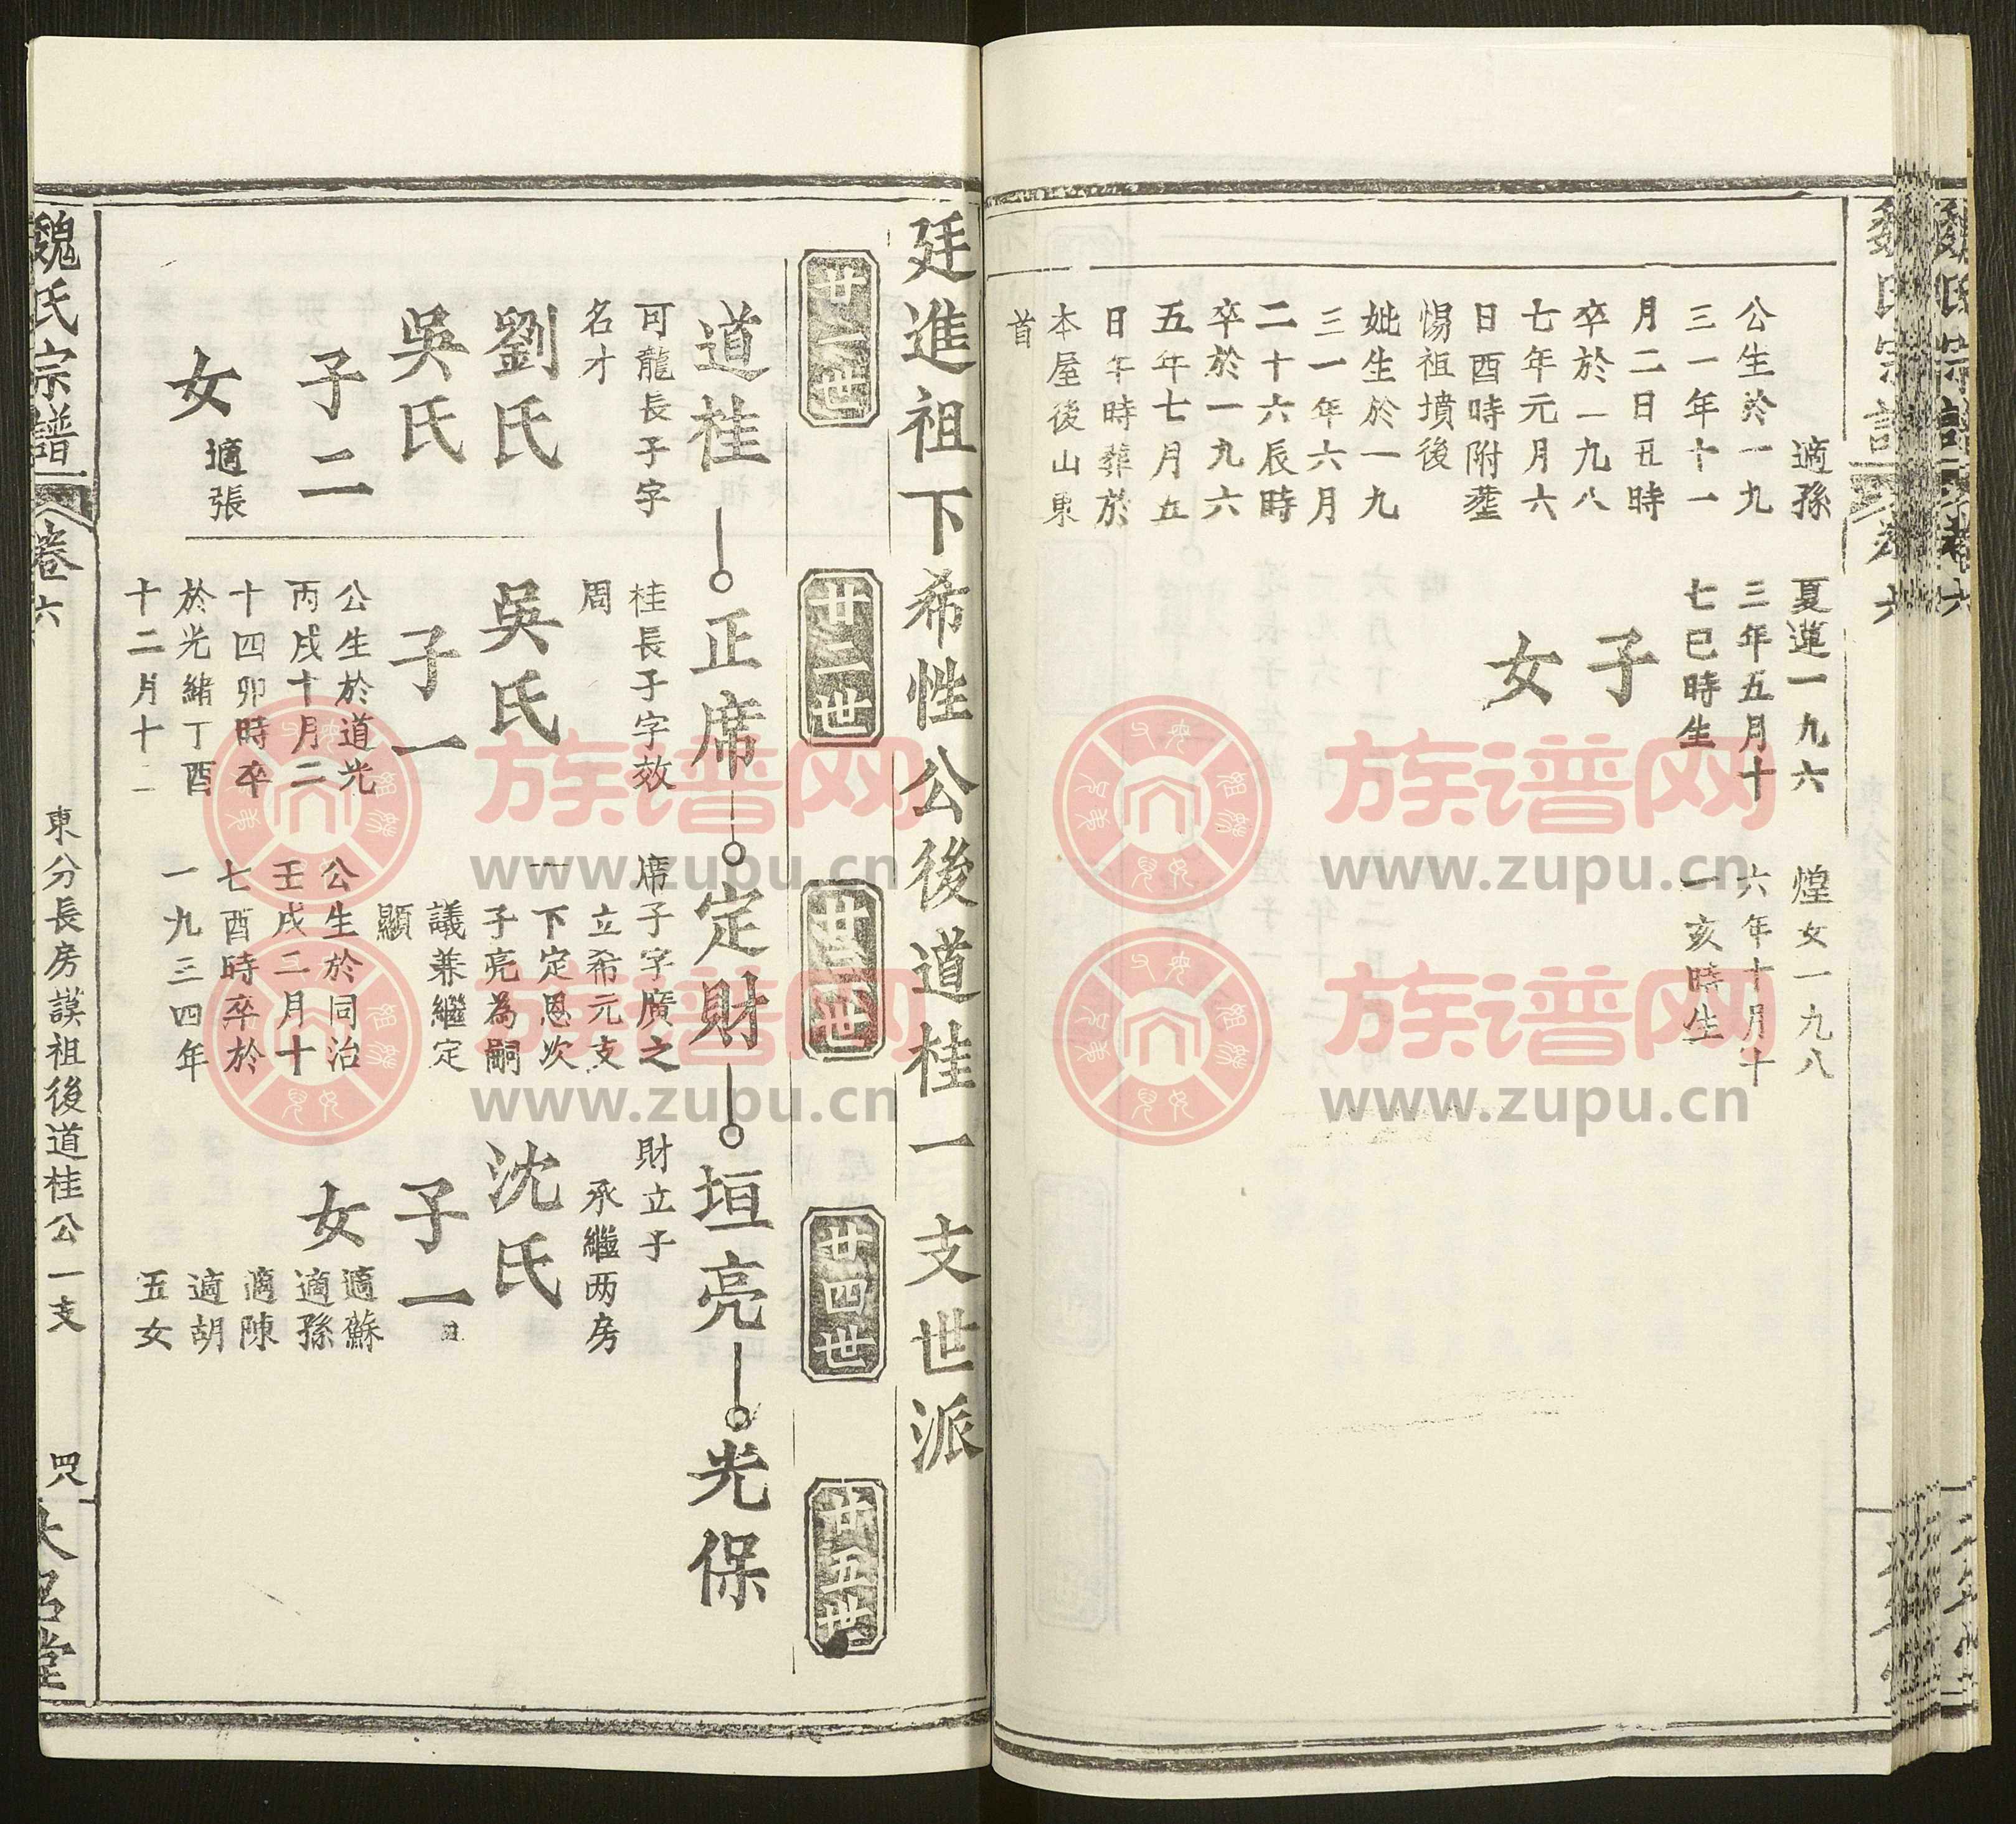 魏氏宗譜
卷六
適孫
公生於一九
三一年十一
月二日丑時
卒於一九八
七年元月六
日酉時附塟
惕祖墳後
妣生於一九
三一年六月
二十六辰時
卒於一九六
五年七月五
日午時葬於
本屋後山東
首
夏蓮一九六
三年五月十
七巳時生
子
女
煌女一九八
六年十月十
一亥時生
廷進祖下希性公後道桂一支世派
廿一世
廿二世
廿三世
廿四世
廿五世
道桂
正席
定財
垣亮
光保
可龍長子字
名才
劉氏
吳氏
子二
女
適張
桂長子字效
周
吳氏
子一
公生於道光
丙戌十月二
十四卯時卒
於光緒丁酉
十二月十一
席子字廣之
立希元支
下定恩次
子亮為嗣
議兼繼定
顯
公生於同治
壬戌二月十
七酉時卒於
一九三四年
財立子
承繼两房
沈氏
子一
女
適蘇
適孫
適陳
適胡
五女
魏氏宗譜
卷六
東分長房謨祖後道桂公一支
大名堂
族谱网
www.zupu.cn
族谱网
www.zupu.cn
族谱网
www.zupu.cn
族谱网
www.zupu.cn